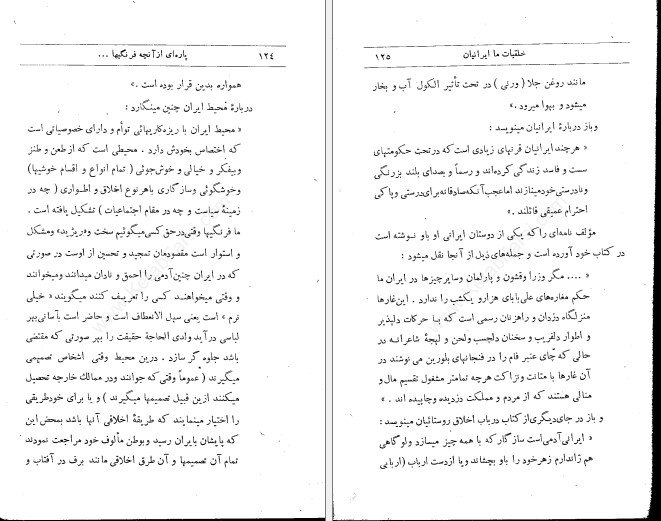 خلقیات ما ایرانیان ۱۲۵
مانند روغن جلا ( ورنی ) در تحت تأثیر الکول آب و بخار
میشود و بهوا میرود . »
وباز دربارهٔ ایرانیان مینویسد :
« هرچند ایرانیان قرنهای زیادی است که درتحت حکومتهای
سست و فاسد زندگی کرده‌اند و رسماً و بصدای بلند بزرنگی
ونادرستی خودمینازند اما عجب آنکه صادقانه برای درستی وپاکی
احترام عمیقی قائلند . »
مؤلف نامه‌ای راکه یکی از دوستان ایرانی او باو نوشته است
در کتاب خود آورده است و جمله‌های ذیل از آنجا نقل میشود :
« .... مگر وزرا وقشون و پارلمان وسایرچیزها در ایران ما
حکم مغاره‌های علی‌بابای هزارو یکشب را ندارد . این غارها
منزلگاه دزدان و راهزنان رسمی است که بـا حرکات دلپذیر
و اطوار دلفریب و سخنان دلچسب ولحن و لهجهٔ شاعرانـه در
حالی که چای عنبر فام را در فنجانهای بلورین می نوشند در
آن غارها با متانت ونزاکت هرچه تمامتر مشغول تقسیم مال و
منالی هستند که از مردم و مملکت دزدیده وچاپیده اند . »
و باز در جای‌دیگری از کتاب درباب اخلاق روستائیان مینویسد :
« ایرانی آدمی است سازگار که با همه چیز میسازد ولوگاهی
هم ژاندارم زهرخود را باو بچشاند ویا ازدست ارباب (اربابی
پاره‌ای ازآنچه فرنگیها ... ۱۲۴
همواره بدین قرار بوده است . »
دربارهٔ مُحیط ایران چنین مینگارد :
« محیط ایران با ریزه‌کاریهائی توأم و دارای خصوصیاتی است
که اختصاص بخودش دارد . محیطی است که از طعن و طنز
وبیفکر و خیالی و خوش‌جوئی ( تمام انواع و اقسام خوشیها)
وخوشگوئی وسازگاری باهرنوع اخلاق و اطواری ( چه در
زمینهٔ سیاست و چه در مقام اجتماعیات ) تشکیل یافته است .
ما فرنگیها وقتی درحق کسی میگوئیم سخت و«ریژید» ومشکل
و استوار است مقصودمان تمجید و تحسین از اوست در صورتی
که در ایران چنین آدمی را احمق و نادان میدانند ومیخوانند
و وقتی میخواهند کسی را تعریف کنند میگویند « خیلی
نرم » است یعنی سهل الانعطاف است و حاضر است بآسانی بهر
لباسی درآید ولدی الحاجة حقیقت را بهر صورتی که مقتضی
باشد جلوه گر سازد . درین محیط وقتی اشخاص تصمیمی
میگیرند ( عموماً وقتی که جوانند ودر ممالك خارجه تحصیل
میکنند ازین قبیل تصمیمها میگیرند ) و یا برای خودطریقی
را اختیار مینمایند که طریقهٔ اخلاقی آنها باشد بمحض این
که پایشان بایران رسید و بوطن مألوف خود مراجعت نمودند
تمام آن تصمیمها و آن طرق اخلاقی مانند برف در آفتاب و